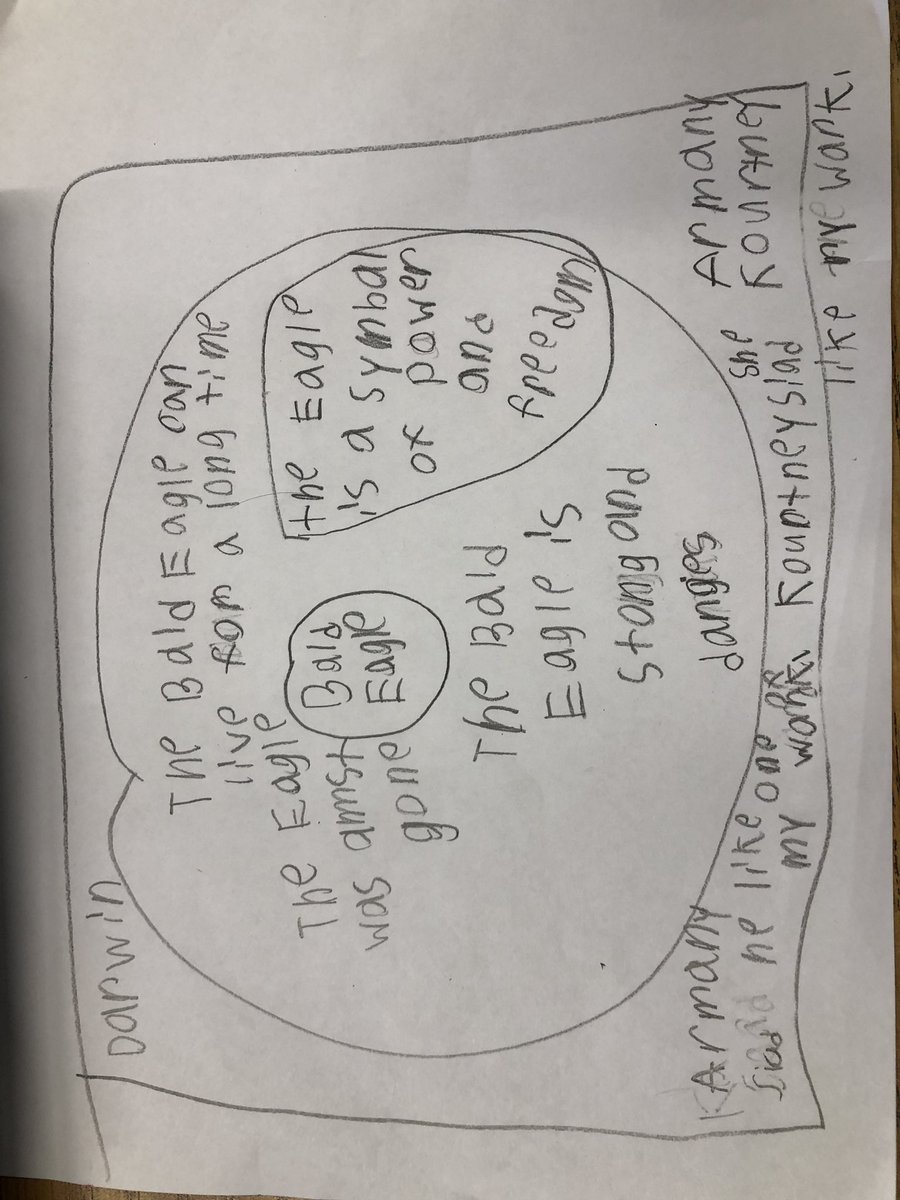 Darwin
The Bald Eagle can
live fom a long time
the Eagle
is a symbal
of power
and
freedom
The Eagle
was amst
gone
Bald
Eagle
The Bald
Eagle is
stong and
danges
Armany
Kourtney
Armany
he like one
my wonk.
Kountney siad
she
like mye wonk.